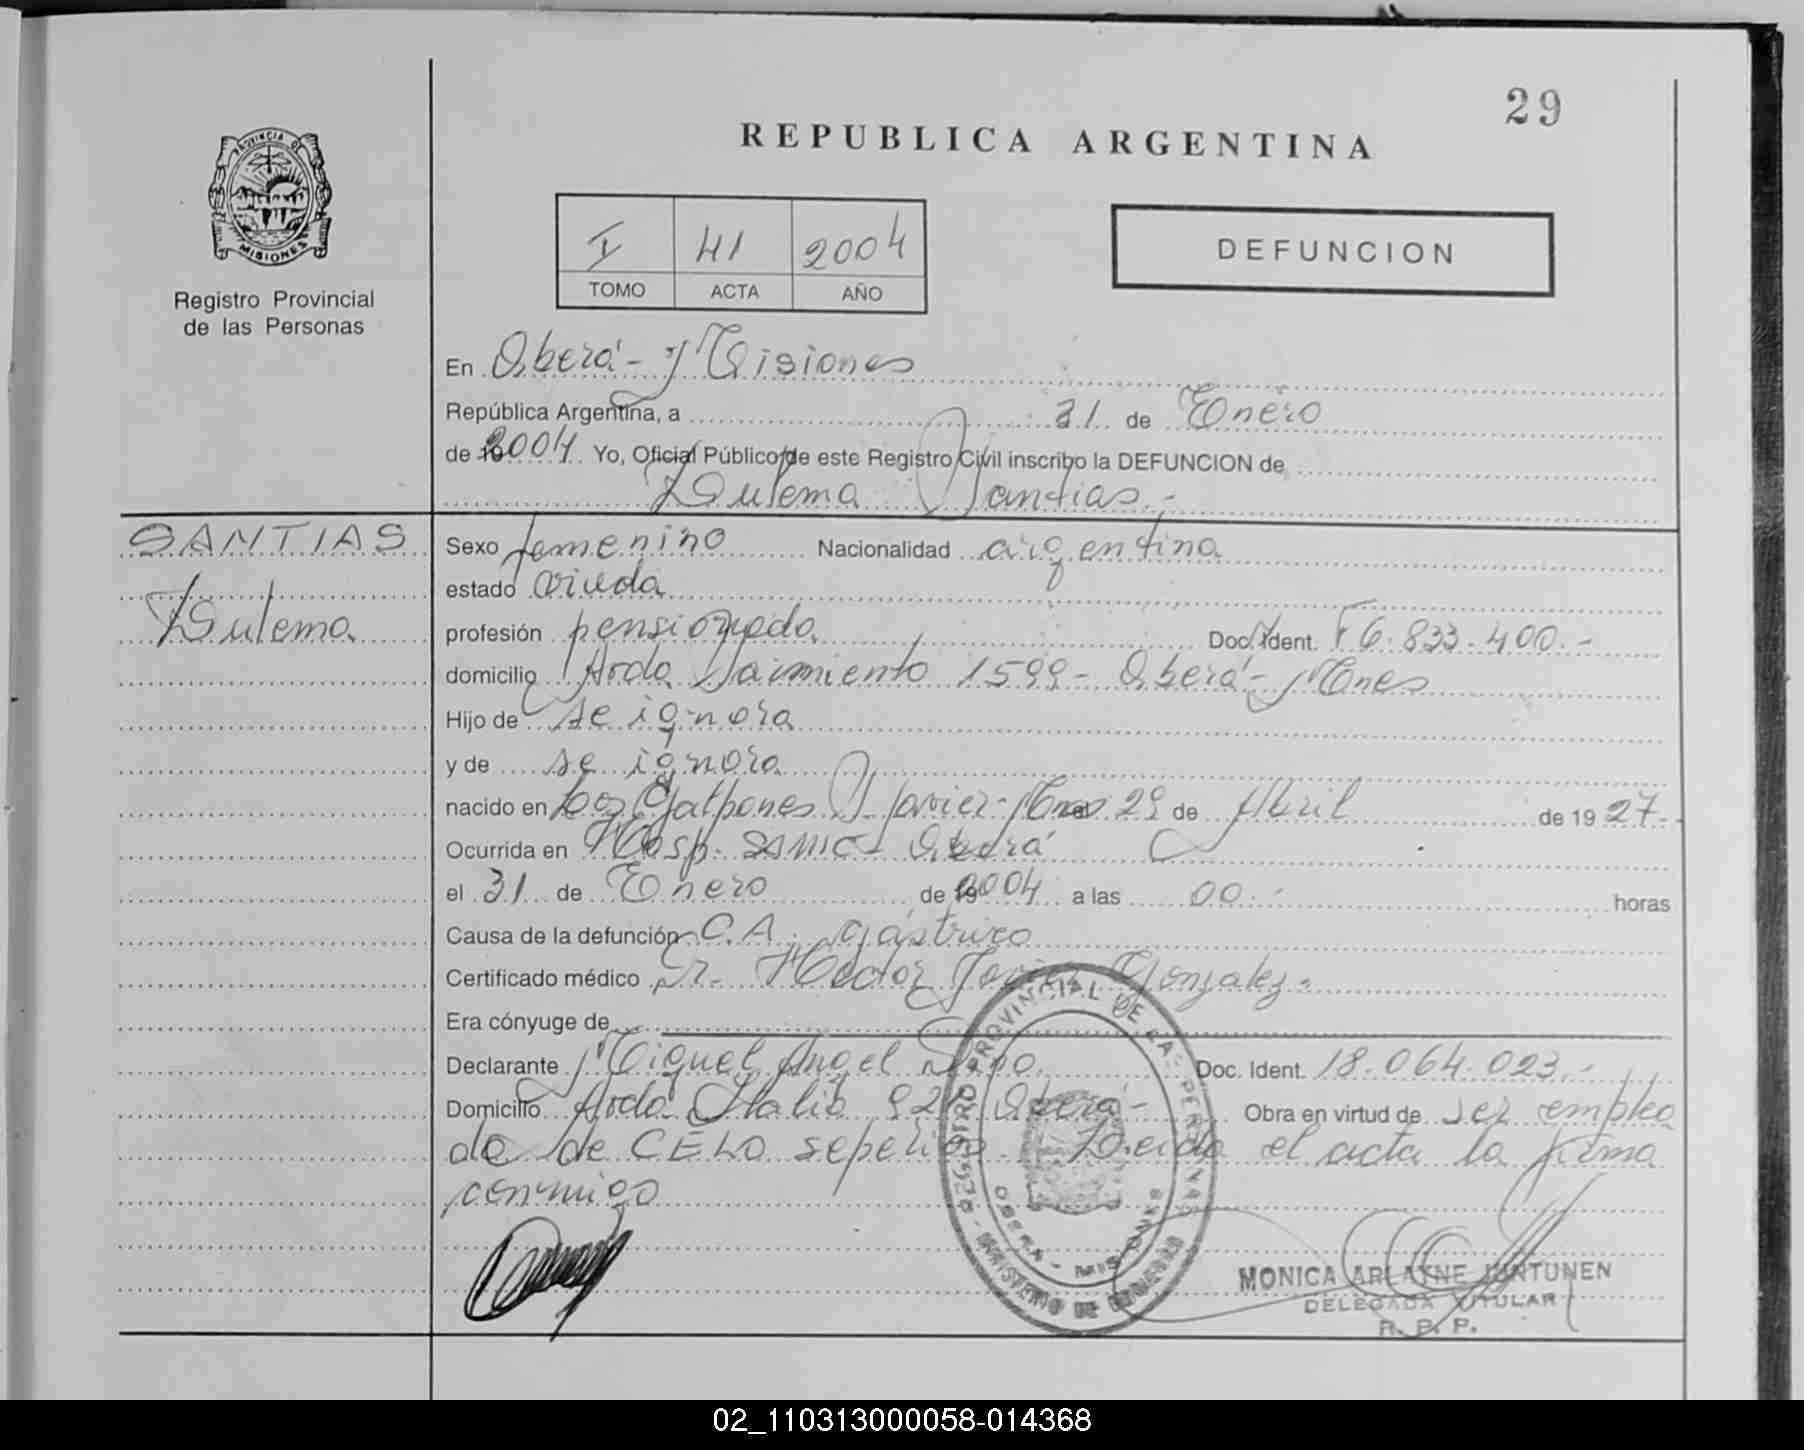 29
REPUBLICA ARGENTINA
PROVINCIA DE
MISIONES
Registro Provincial
de las Personas
I 41 2004
TOMO ACTA AÑO
DEFUNCION
En Oberá - Misiones
República Argentina, a 31 de Enero
de 2004 Yo, Oficial Público de este Registro Civil inscribo la DEFUNCION de
Zulema Santias.-
SANTIAS
Zulema
Sexo femenino Nacionalidad argentina
estado viuda
profesión pensionada Doc. Ident. F 6.833.400.-
domicilio Avda Sarmiento 1599 - Oberá - Mnes
Hijo de se ignora
y de se ignora
nacido en Los Galpones S. Javier - Mnes 29 de Abril de 1927.-
Ocurrida en Hosp. SAMIC - Oberá
el 31 de Enero de 2004 a las 00.- horas
Causa de la defunción C.A. gástrico
Certificado médico Dr. Hector Javier Gonzalez.
Era cónyuge de
Declarante Miguel Angel Doc. Ident. 18.064.023.-
Domicilio Avda Italia Oberá - Obra en virtud de ser emplea
do de CELO sepelios. Leida el acta la firma
conmigo
REGISTRO PROVINCIAL DE LAS PERSONAS
OBERA - MISIONES
MINISTERIO DE
MONICA ARLAYNE
DELEGADA TITULAR
R. P. P.
02_110313000058-014368